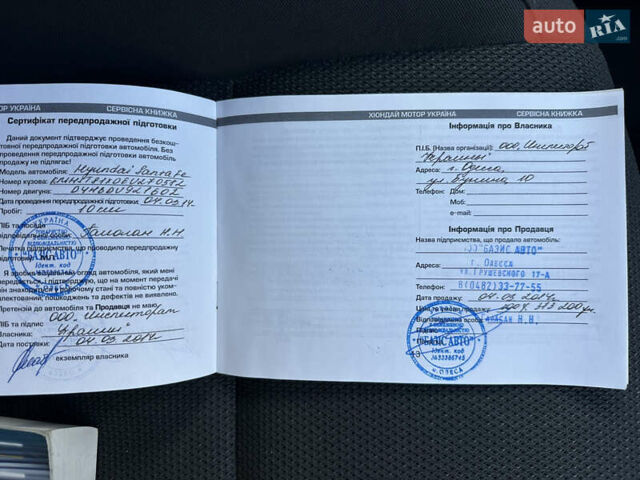 auto RIA.com
ОР УКРАЇНА СЕРВІСНА КНИЖКА
Сертифікат передпродажної підготовки
Даний документ підтверджує проведення безкош-
товної передпродажної підготовки автомобіля. Без
проведення передпродажної підготовки автомобіль
продажу не підлягає!
Модель автомобіля: Hyundai Santa Fe
Номер кузова:
Номер двигуна:
Дата проведення передпродажної підготовки: 04.03.14.
Пробіг: 10 км
ПІБ та посада
відповідальної особи: Каплан Н.Н.
Печатка підприємства, що проводило передпродажну
підготовку: МП
УКРАЇНА
"БАЗИС АВТО"
Ідент. код
Я зробив огляд автомобіля, який мені
передається, і підтверджую, що на момент передачі
він знаходиться у робочому стані та повністю уком-
плектований; пошкоджень та дефектів не виявлено.
Претензій до автомобіля та Продавця не маю
ООО, Инспекторат
ПІБ та підпис Украины
Власника:
Дата поставки: 04.03.2014
екземпляр власника
ХЮНДАЙ МОТОР УКРАЇНА СЕРВІСНА КНИЖКА
Інформація про Власника
П.І.Б. (Назва організації): ООО, Инспекторат
Украины
Адреса: г. Одесса,
10
Телефон: Дом:
Моб:
e-mail:
Інформація про Продавця
Назва підприємства, що продало автомобіль:
"БАЗИС АВТО"
Адреса: г. ОДЕССА
УЛ. ГРУШЕВСКОГО 17-А
Телефон: 8(0482)33-77-55
Дата продажу: 04.03.2014
Ціна та умови продажу:
Відповідальна особа: КАПЛАН Н.Н.
"БАЗИС АВТО"
Ідент. код
м.ОДЕСА
43